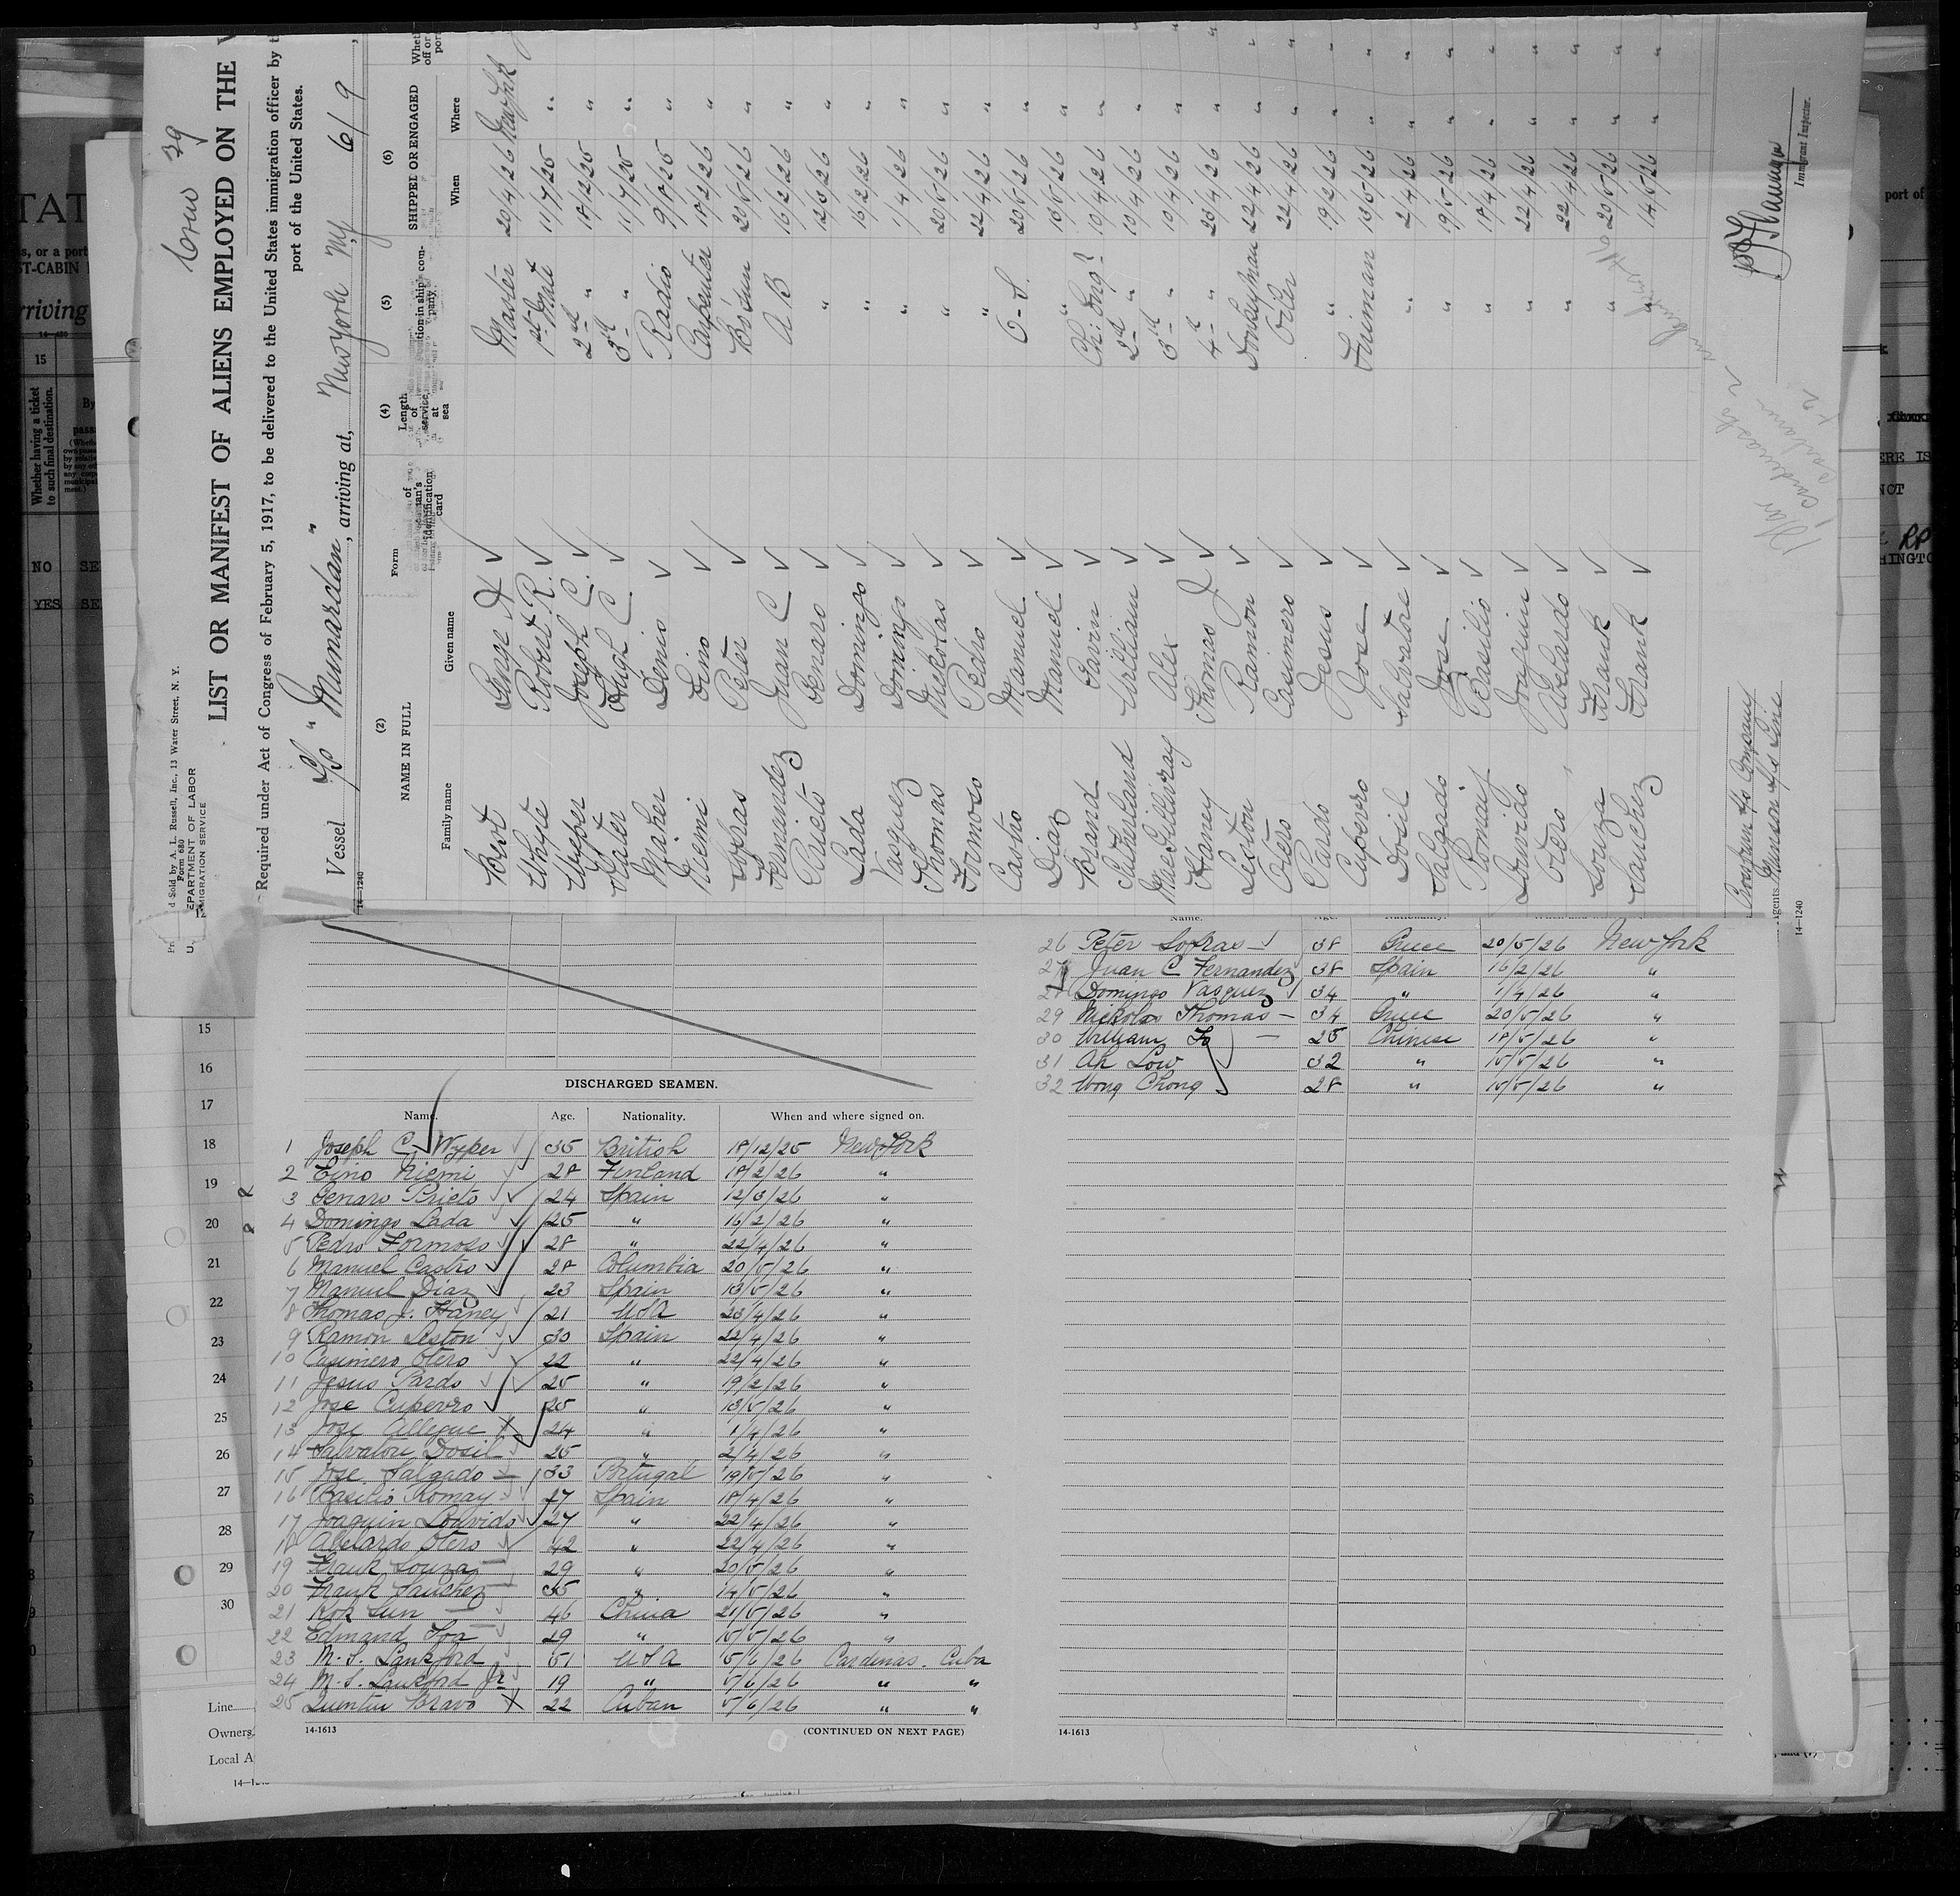 Crew 39
d Sold by A. L. Russell, Inc., 13 Water Street, N. Y.
Form 680
EPARTMENT OF LABOR
MIGRATION SERVICE
LIST OR MANIFEST OF ALIENS EMPLOYED ON THE
Required under Act of Congress of February 5, 1917, to be delivered to the United States immigration officer by
port of the United States.
Vessel S/S "Munardan", arriving at, New York NY 6/9
14-1240
(2) (4) (5) (6)
NAME IN FULL Form Length of service at sea Position in ship's company SHIPPED OR ENGAGED
Family name Given name identification card When Where
Best George A Master 20/4/26 New York
Whyte Robert R. 1st Mate 11/7/25 "
Wyper Joseph C. 2nd " 18/12/25 "
Slater Hugh C. 3rd " 11/7/25 "
Maher Denis Radio 9/8/25 "
Niemi Eino Carpenter 18/2/26 "
Sofras Peter Bosun 20/5/26 "
Fernandez Juan C A B 16/2/26 "
Prieto Genaro " 12/3/26 "
Lada Domingo " 16/2/26 "
Vasquez Domingo " 1/4/26 "
Thomas Nickolas " 20/5/26 "
Formoso Pedro " 22/4/26 "
Castro Manuel O-S. 20/5/26 "
Diaz Manuel " 13/5/26 "
Brand Gavin Ch: Eng? 10/4/26 "
Sutherland William 2nd " 10/4/26 "
MacGillivray Alex 3rd " 10/4/26 "
Haney Thomas J 4th " 23/4/26 "
Leston Ramon Donkeyman 22/4/26 "
Otero Casimero Oiler 22/4/26 "
Pardo Jesus " 19/2/26 "
Cupevro Jose Fireman 13/5/26 "
Dosil Salvatore " 2/4/26 "
Salgado Jose " 19/5/26 "
Romay Basilio " 18/4/26 "
Louvido Joaquin " 22/4/26 "
Otero Abelardo " 22/4/26 "
Souza Frank " 20/5/26 "
Sanchez Frank " 14/5/26 "
Immigrant Inspector.
Munson S/S Line
Agents.
14-1240
DISCHARGED SEAMEN.
Name. Age. Nationality. When and where signed on.
1 Joseph C. Wyper 35 British 18/12/25 New York
2 Eino Niemi 28 Finland 18/2/26 "
3 Genaro Prieto 24 Spain 12/3/26 "
4 Domingo Lada 25 " 16/2/26 "
5 Pedro Formoso 28 " 22/4/26 "
6 Manuel Castro 28 Columbia 20/5/26 "
7 Manuel Diaz 23 Spain 13/5/26 "
8 Thomas J. Haney 21 USA 23/4/26 "
9 Ramon Leston 30 Spain 22/4/26 "
10 Casimero Otero 22 " 22/4/26 "
11 Jesus Pardo 25 " 19/2/26 "
12 Jose Cupevro 25 " 13/5/26 "
13 Jose Allegue X 24 " 1/4/26 "
14 Salvatore Dosil 25 " 2/4/26 "
15 Jose Salgado 33 Portugal 19/5/26 "
16 Basilio Romay 27 Spain 18/4/26 "
17 Joaquin Louvido 27 " 22/4/26 "
18 Abelardo Otero 42 " 22/4/26 "
19 Frank Souza 29 " 20/5/26 "
20 Frank Sanchez 35 " 14/5/26 "
21 Kok Sun 46 China 21/5/26 "
22 Edmand Foa 29 " 15/5/26 "
23 M. S. Lankford 51 USA 5/6/26 Cardenas. Cuba
24 M. S. Lankford Jr 19 " 5/6/26 " "
25 Quentin Bravo X 22 Cuban 5/6/26 " "
14-1613 (CONTINUED ON NEXT PAGE)
26 Peter Sofras 38 Greece 20/5/26 New York
27 Juan C Fernandez 38 Spain 16/2/26 "
28 Domingo Vasquez 34 " 1/4/26 "
29 Nickolas Thomas 34 Greece 20/5/26 "
30 William Fo 25 Chinese 18/5/26 "
31 Ah Low 32 " 15/5/26 "
32 Wong Chong 28 " 15/5/26 "
14-1613
15
16
17
18
19
20
21
22
23
24
25
26
27
28
29
30
Line
Owners
Local A
Whether having a ticket to such final destination.
NO
YES
port of